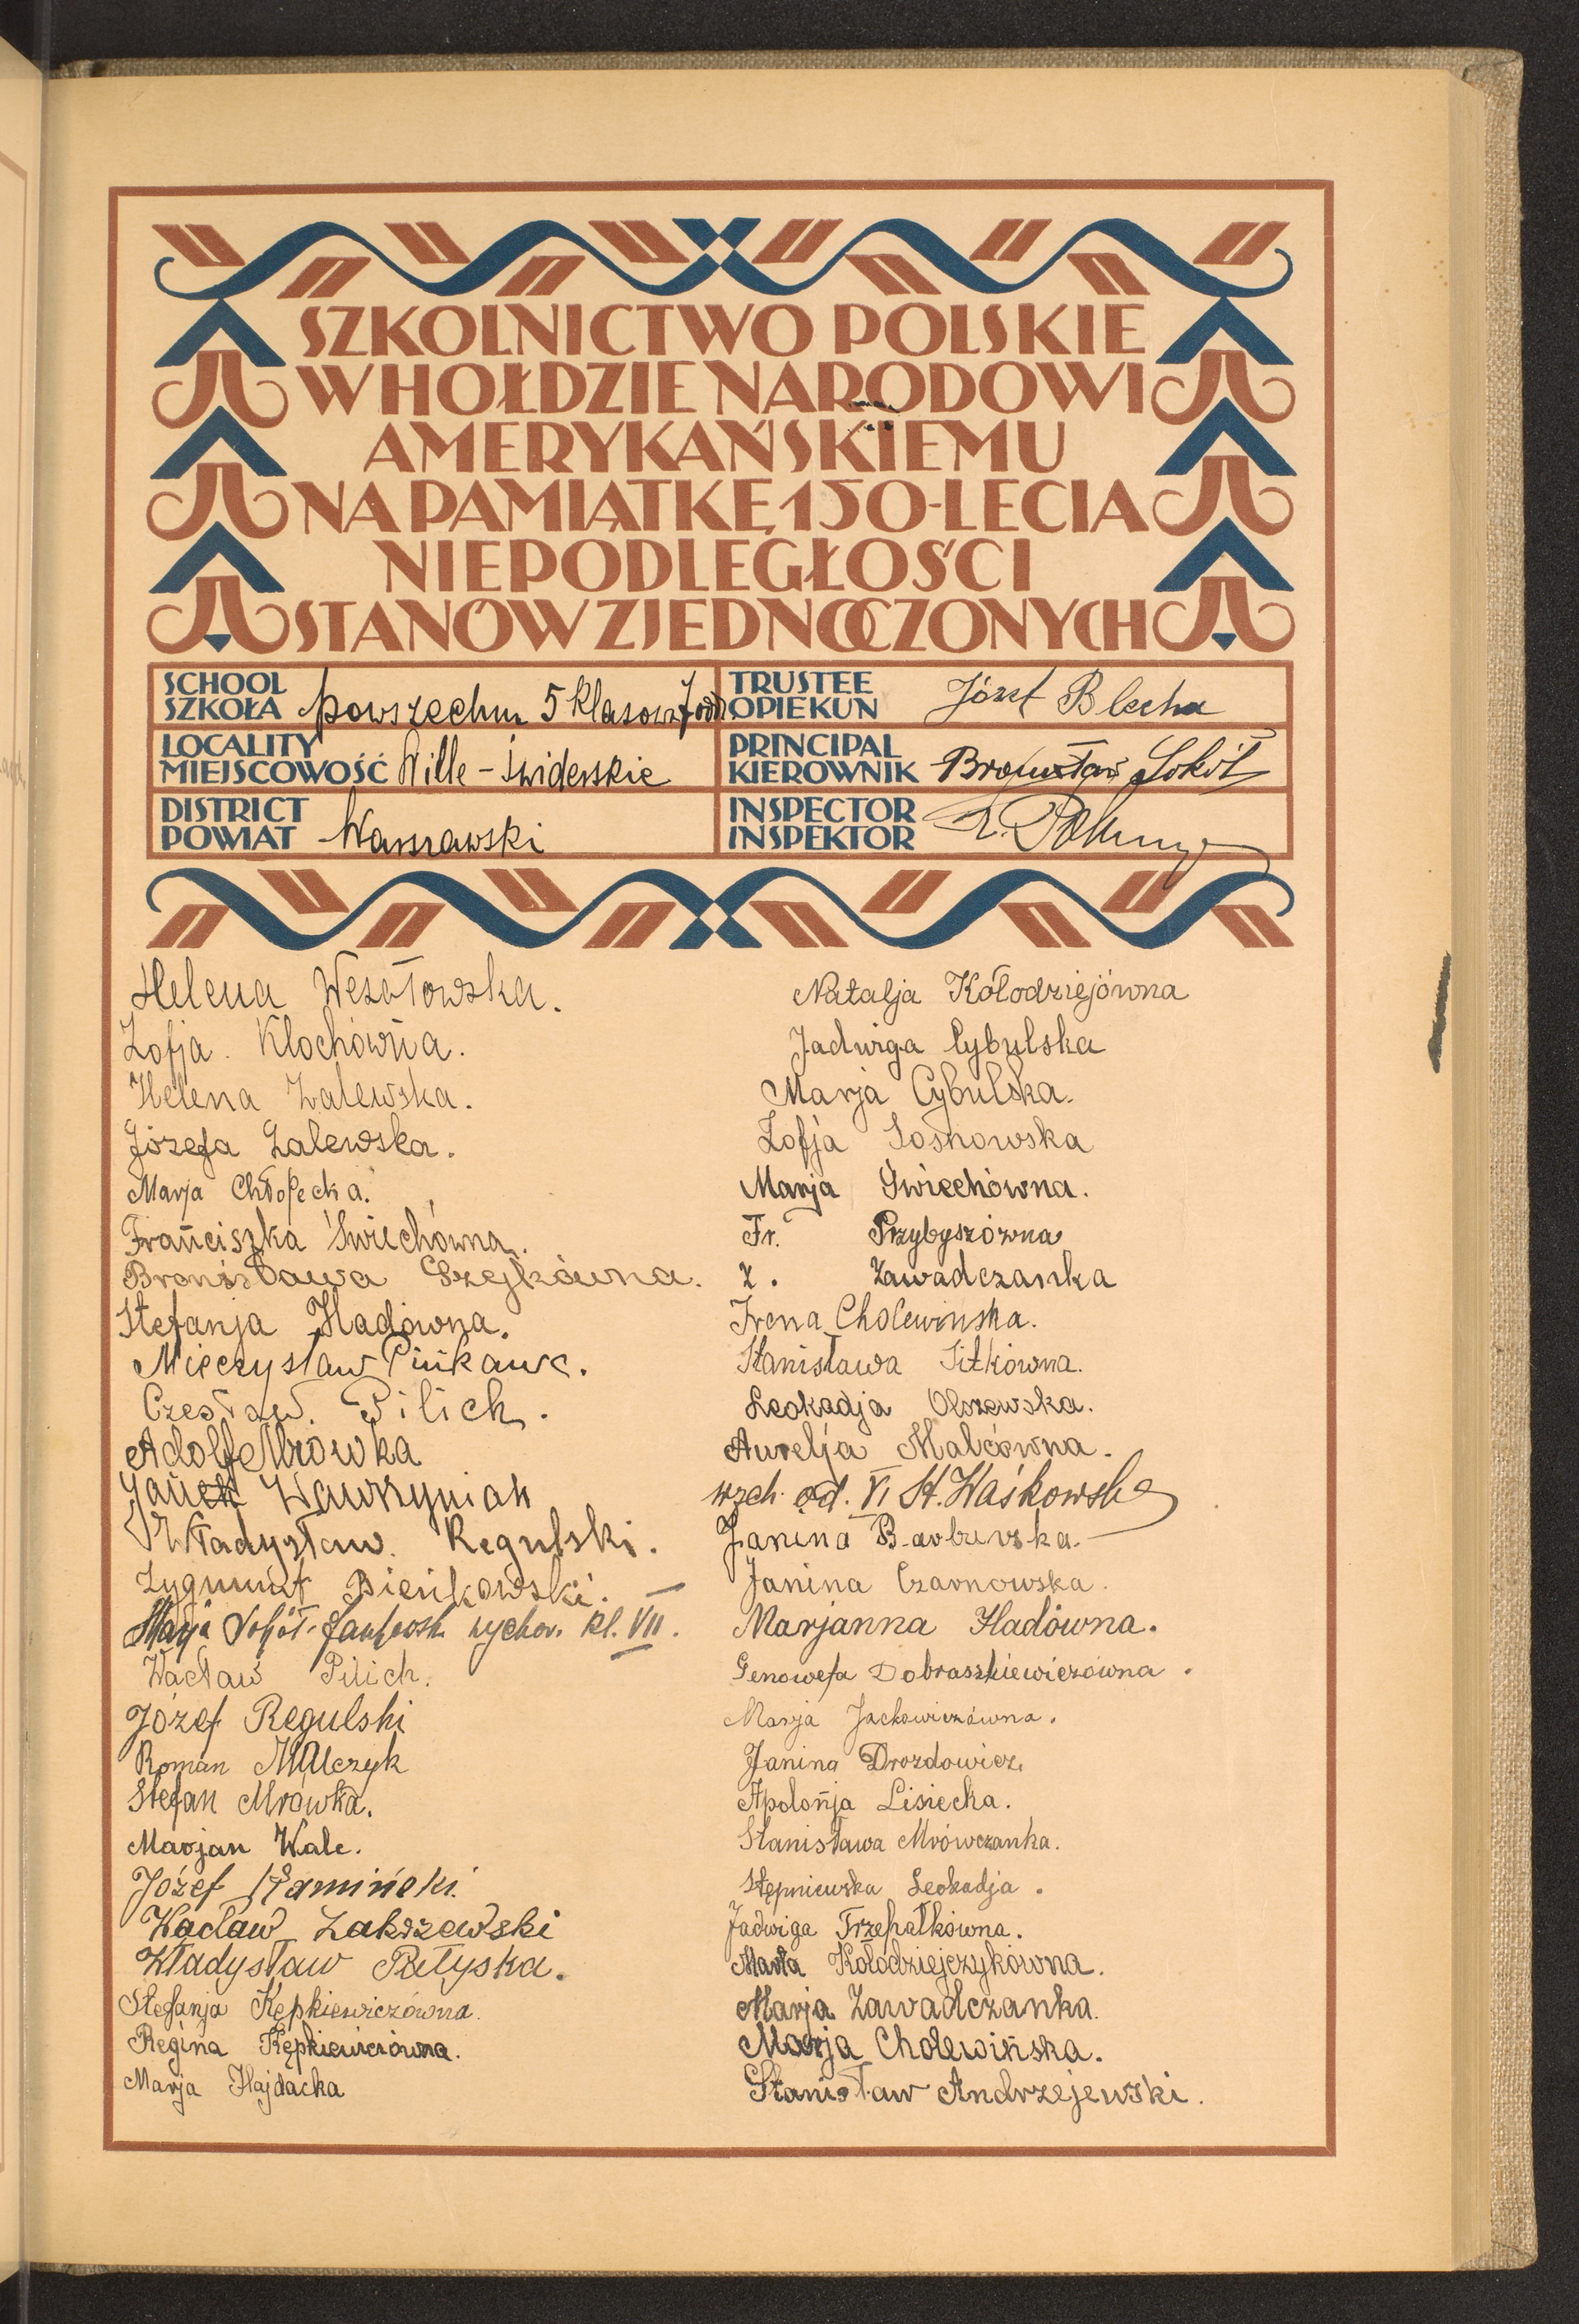 SZKOLNICTWO POLSKIE
W HOŁDZIE NARODOWI
AMERYKAŃSKIEMU
NA PAMIĄTKĘ 150-LECIA
NIEPODLEGŁOŚCI
STANÓW ZJEDNOCZONYCH
SCHOOL
SZKOŁA powszechn 5 klasowa 7 odd.
TRUSTEE
OPIEKUN Józef Blecha
LOCALITY
MIEJSCOWOŚĆ Wille - Świderskie
PRINCIPAL
KIEROWNIK Bronisław Sokół
DISTRICT
POWIAT Warszawski
INSPECTOR
INSPEKTOR
Helena Wesołowska.
Zofja. Klochówna.
Helena Zalewska.
Józefa Zalewska.
Marja Chłopecka.
Franciszka Świechówna.
Bronisława Szejkówna.
Stefanja Hadówna.
Mieczysław
Czesław. Pilich.
Adolf Mrówka
Janek Wawrzyniak
Władysław. Regulski.
Zygmunt Bieńkowski.
Marja Sokół- wychow. kl. VII.
Wacław Pilich.
Józef Regulski
Roman Malczyk
Stefan Mrówka.
Marjan Walc.
Józef Kamiński.
Wacław Zakrzewski
Władysław Pałyska.
Stefanja Kępkiewiczówna.
Regina Kępkiewiczówna.
Marja Hajdacka
Natalja Kołodziejówna
Jadwiga Cybulska
Marja Cybulska.
Zofja Sosnowska
Marja Świechówna.
Fr. Przybyszówna
Z. Zawadczanka
Irena Cholewińska.
Stanisława Sitkówna.
Leokadja Olszewska.
Aurelja Malcówna.
wych. od. VI St. Waśkowska
Janina
Janina Czarnowska.
Marjanna Hadówna.
Genowefa Dobraszkiewiczówna.
Marja Jackowiczówna.
Janina Drozdowicz.
Apolonja Lisiecka.
Stanisława Mrówczanka.
Stępniewska Leokadja.
Jadwiga Trzepałkówna.
Marta Kołodziejczykówna.
Marja Zawadczanka.
Marja Cholewińska.
Stanisław Andrzejewski.